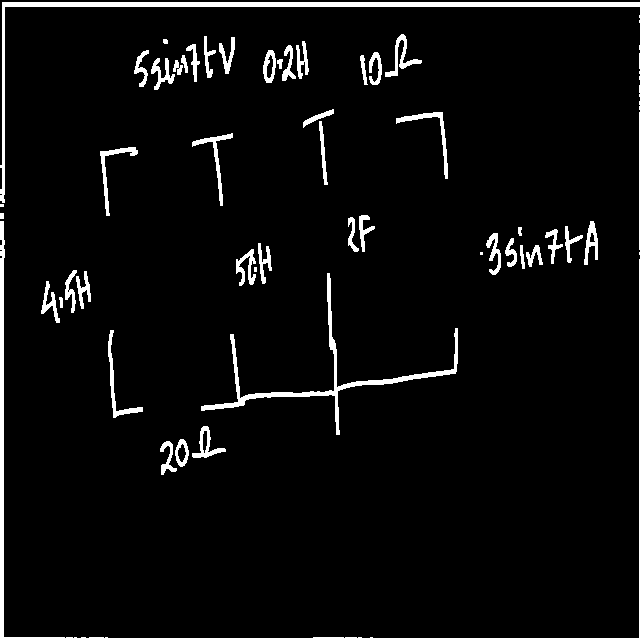 5sin7tV 0.2H 10Ω
4.5H 50H 2F 3sin7tA
20Ω